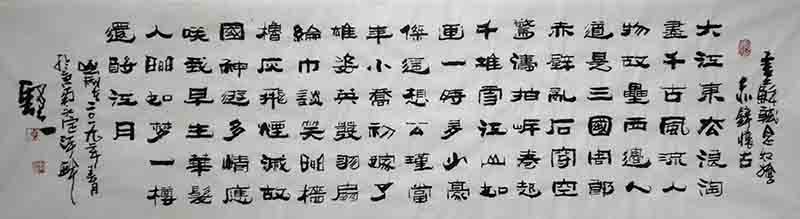 書蘇軾念奴嬌
赤壁懷古
大江東去浪淘
盡千古風流人
物故壘西邊人
道是三國周郎
赤壁亂石穿空
驚濤拍岸卷起
千堆雪江山如
畫一時多少豪
傑遙想公瑾當
年小喬初嫁了
雄姿英發羽扇
綸巾談笑間檣
櫓灰飛煙滅故
國神遊多情應
咲我早生華髮
人間如梦一樽
還酹江月
二〇一九年